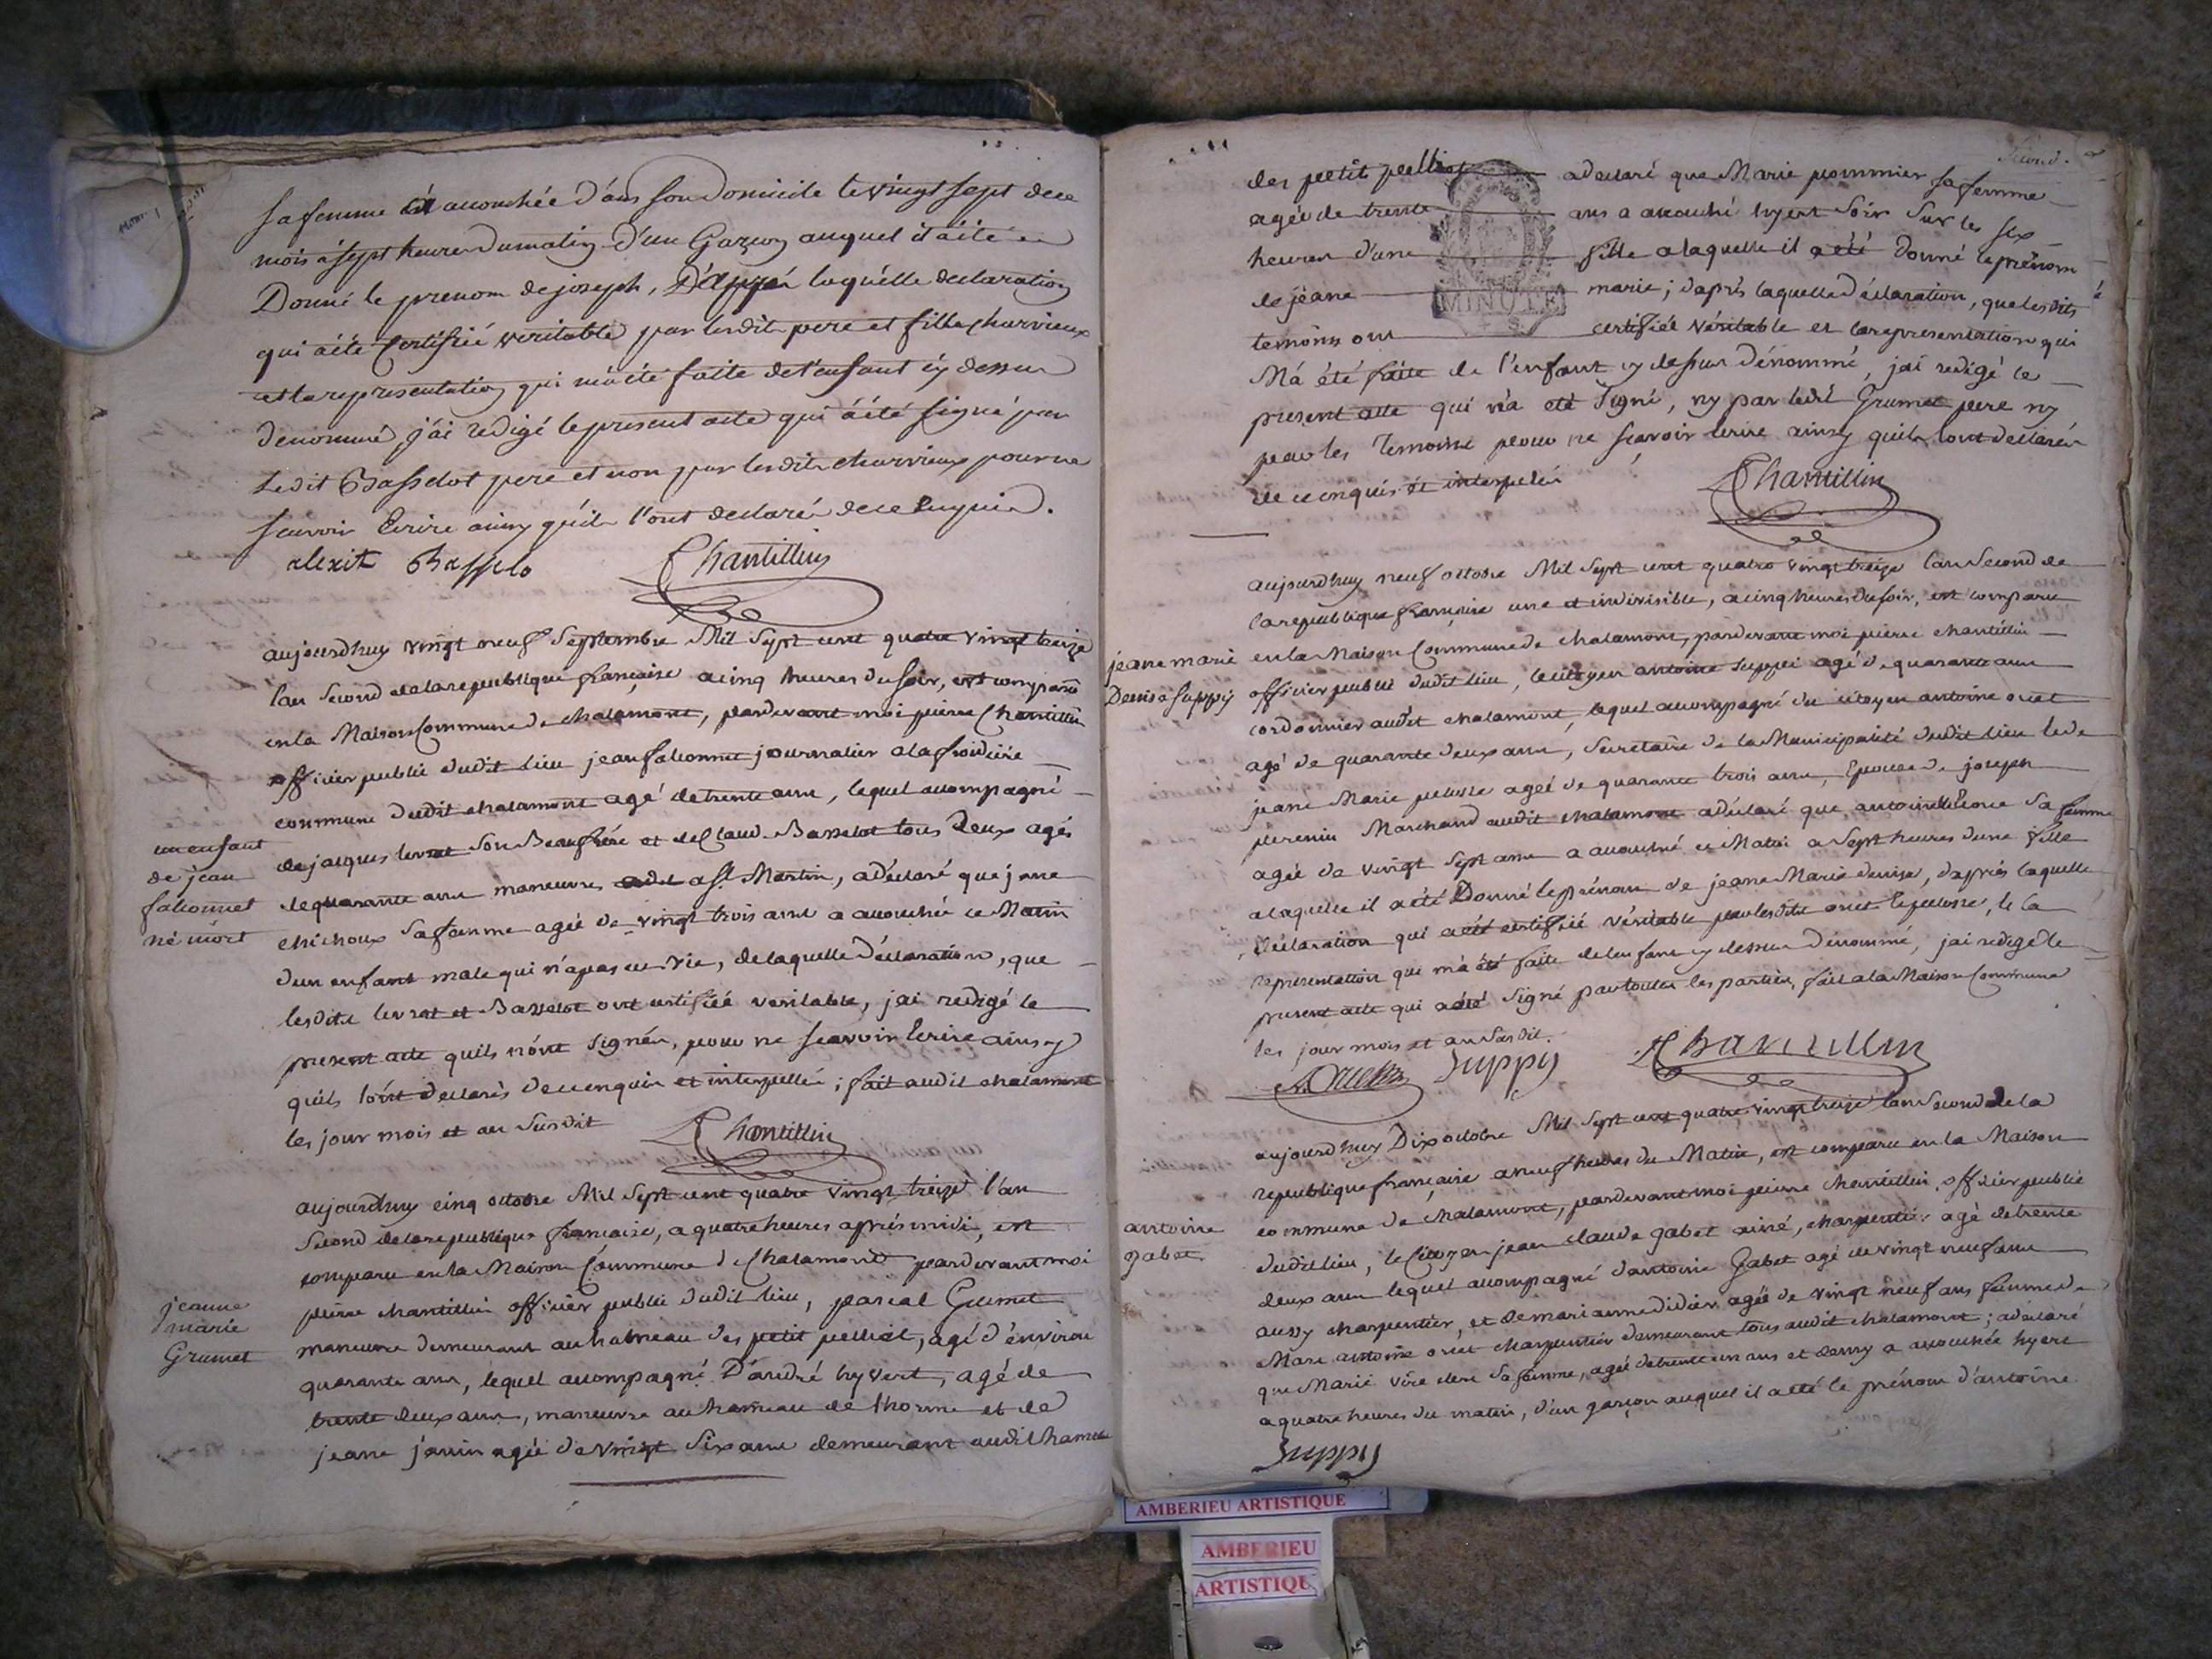 sa femme est accouchée dans son domicile le vingt sept de ce
mois a sept heures du matin d'un Garçon auquel il a été
Donné le prenom de joseph, D'après laquelle declaration
qui a été Certifiée veritable par lesdits pere et fille charvieux
et la representation qui m'a été faite de l'enfant cy dessus
denommé, j'ai redigé le present acte qui a été signé par
Ledit Basselot pere et non par lesdits charvieux pour ne
scavoir Ecrire ainsy qu'ils l'ont declaré de ce Enquis.
alexit Basselo Chantillin
aujourdhuy vingt neuf Septembre Mil Sept cent quatre vingt treize
l'an Second de la republique française a cinq heures du soir, est comparu
en la Maison Commune de chalamont, pardevant moi pierre Chantillin
officier public dudit lieu jean falconnet journalier a la froidière
commune dudit chalamont agé de trente ans, lequel accompagné
un enfant
de jean
falconnet
né mort
de jacques levrat son Beaufrère et de Claude Basselot tous Deux agés
de quarante ans maneuvres a St Martin, a déclaré que jeane
chichoux sa femme agée de vingt trois ans a accouchée ce Matin
d'un enfant male qui n'a pas eu vie, de laquelle Déclaration, que
lesdits levrat et Basselot ont certifiée veritable, jai redigé le
present acte quils n'ont signés, pour ne scavoir Ecrire ainsy
quils l'ont declarés de ce enquis et interpellés; fait audit chalamont
les jour mois et an susdit Chantillin
aujourdhuy cinq octobre Mil Sept cent quatre vingt treize l'an
Second de la republique française, a quatre heures après midi, est
comparu en la Maison Commune de Chalamont pardevant moi
jeanne
marie
Grumet
pierre chantillin officier public dudit lieu, pascal Grumet
maneuvre demeurant au hameau des petit pelliat, agé d'environ
quarante ans, lequel accompagné D'andré hyvert, agé de
trente deux ans, maneuvre au hameau de l'horme et de
jeane janin agée de vingt six ans demeurant audit hameau
Second.
des petit pelliat a declaré que Marie pommier sa femme
agée de trente ans a accouché hyert Soir Sur les six
heures d'une fille a laquelle il a été Donné le prénom
de jéane marie; d'après laquelle Déclaration, que lesdits
MINUTE
temoins ont certifiée véritable et la representation qui
M'a été faite de l'enfant cy dessus Dénommé, jai redigé le
present acte qui n'a été Signé, ny par ledit Grumet pere ny
par les Temoins pour ne scavoir écrire ainsy quils l'ont declarés
de ce enquis et interpelés Chantillin
aujourdhuy neuf octobre Mil Sept cent quatre vingt treize l'an Second de
la republique française une et indivisible, a cinq heures du soir, est comparu
jeane marie
Denise Suppy
en la Maison Commune de chalamont, pardevant moi pierre chantillin
officier public dudit lieu, le citoyen antoine Suppy agé de quarante ans
cordonnier audit chalamont, lequel accompagné du citoyen antoine oriet
agé de quarante deux ans, Secretaire de la Municipalité dudit lieu & de
jeane Marie agée de quarante trois ans, Epouse de joseph
Marchand audit chalamont a déclaré que antoinette sa femme
agée de vingt Sept ans a accouché ce Matin a Sept heures d'une fille
a laquelle il a été Donné le prénom de jeane Marie denise, d'après laquelle
Déclaration qui a été certifiée véritable par lesdits oriet & & la
representation qui m'a été faite de l'enfant cy dessus Dénommé, jai redigé le
present acte qui a été Signé par toutes les parties, fait a la Maison Commune
les jour mois et an Susdit.
Suppy Chantillin
aujourdhuy Dix octobre Mil Sept cent quatre vingt treize l'an Second de la
republique française a neuf heures du Matin, est comparu en la Maison
commune de chalamont, pardevant moi pierre chantillin, officier public
antoine
gabet
dudit lieu, le Citoyen jean claude gabet ainé, charpentier agé de trente
deux ans lequel accompagné d'antoine Gabet agé de vingt neuf ans
aussy charpentier, et de mari anne didier agée de vingt neuf ans femme de
Marc antoine oriet charpentier demeurant tous audit chalamont; a declaré
que Marie sa femme, agée de trente un ans et demy a accouchée hyert
a quatre heures du matin, d'un garçon auquel il a été le prénom d'antoine
Suppy
AMBERIEU ARTISTIQUE
AMBERIEU
ARTISTIQU